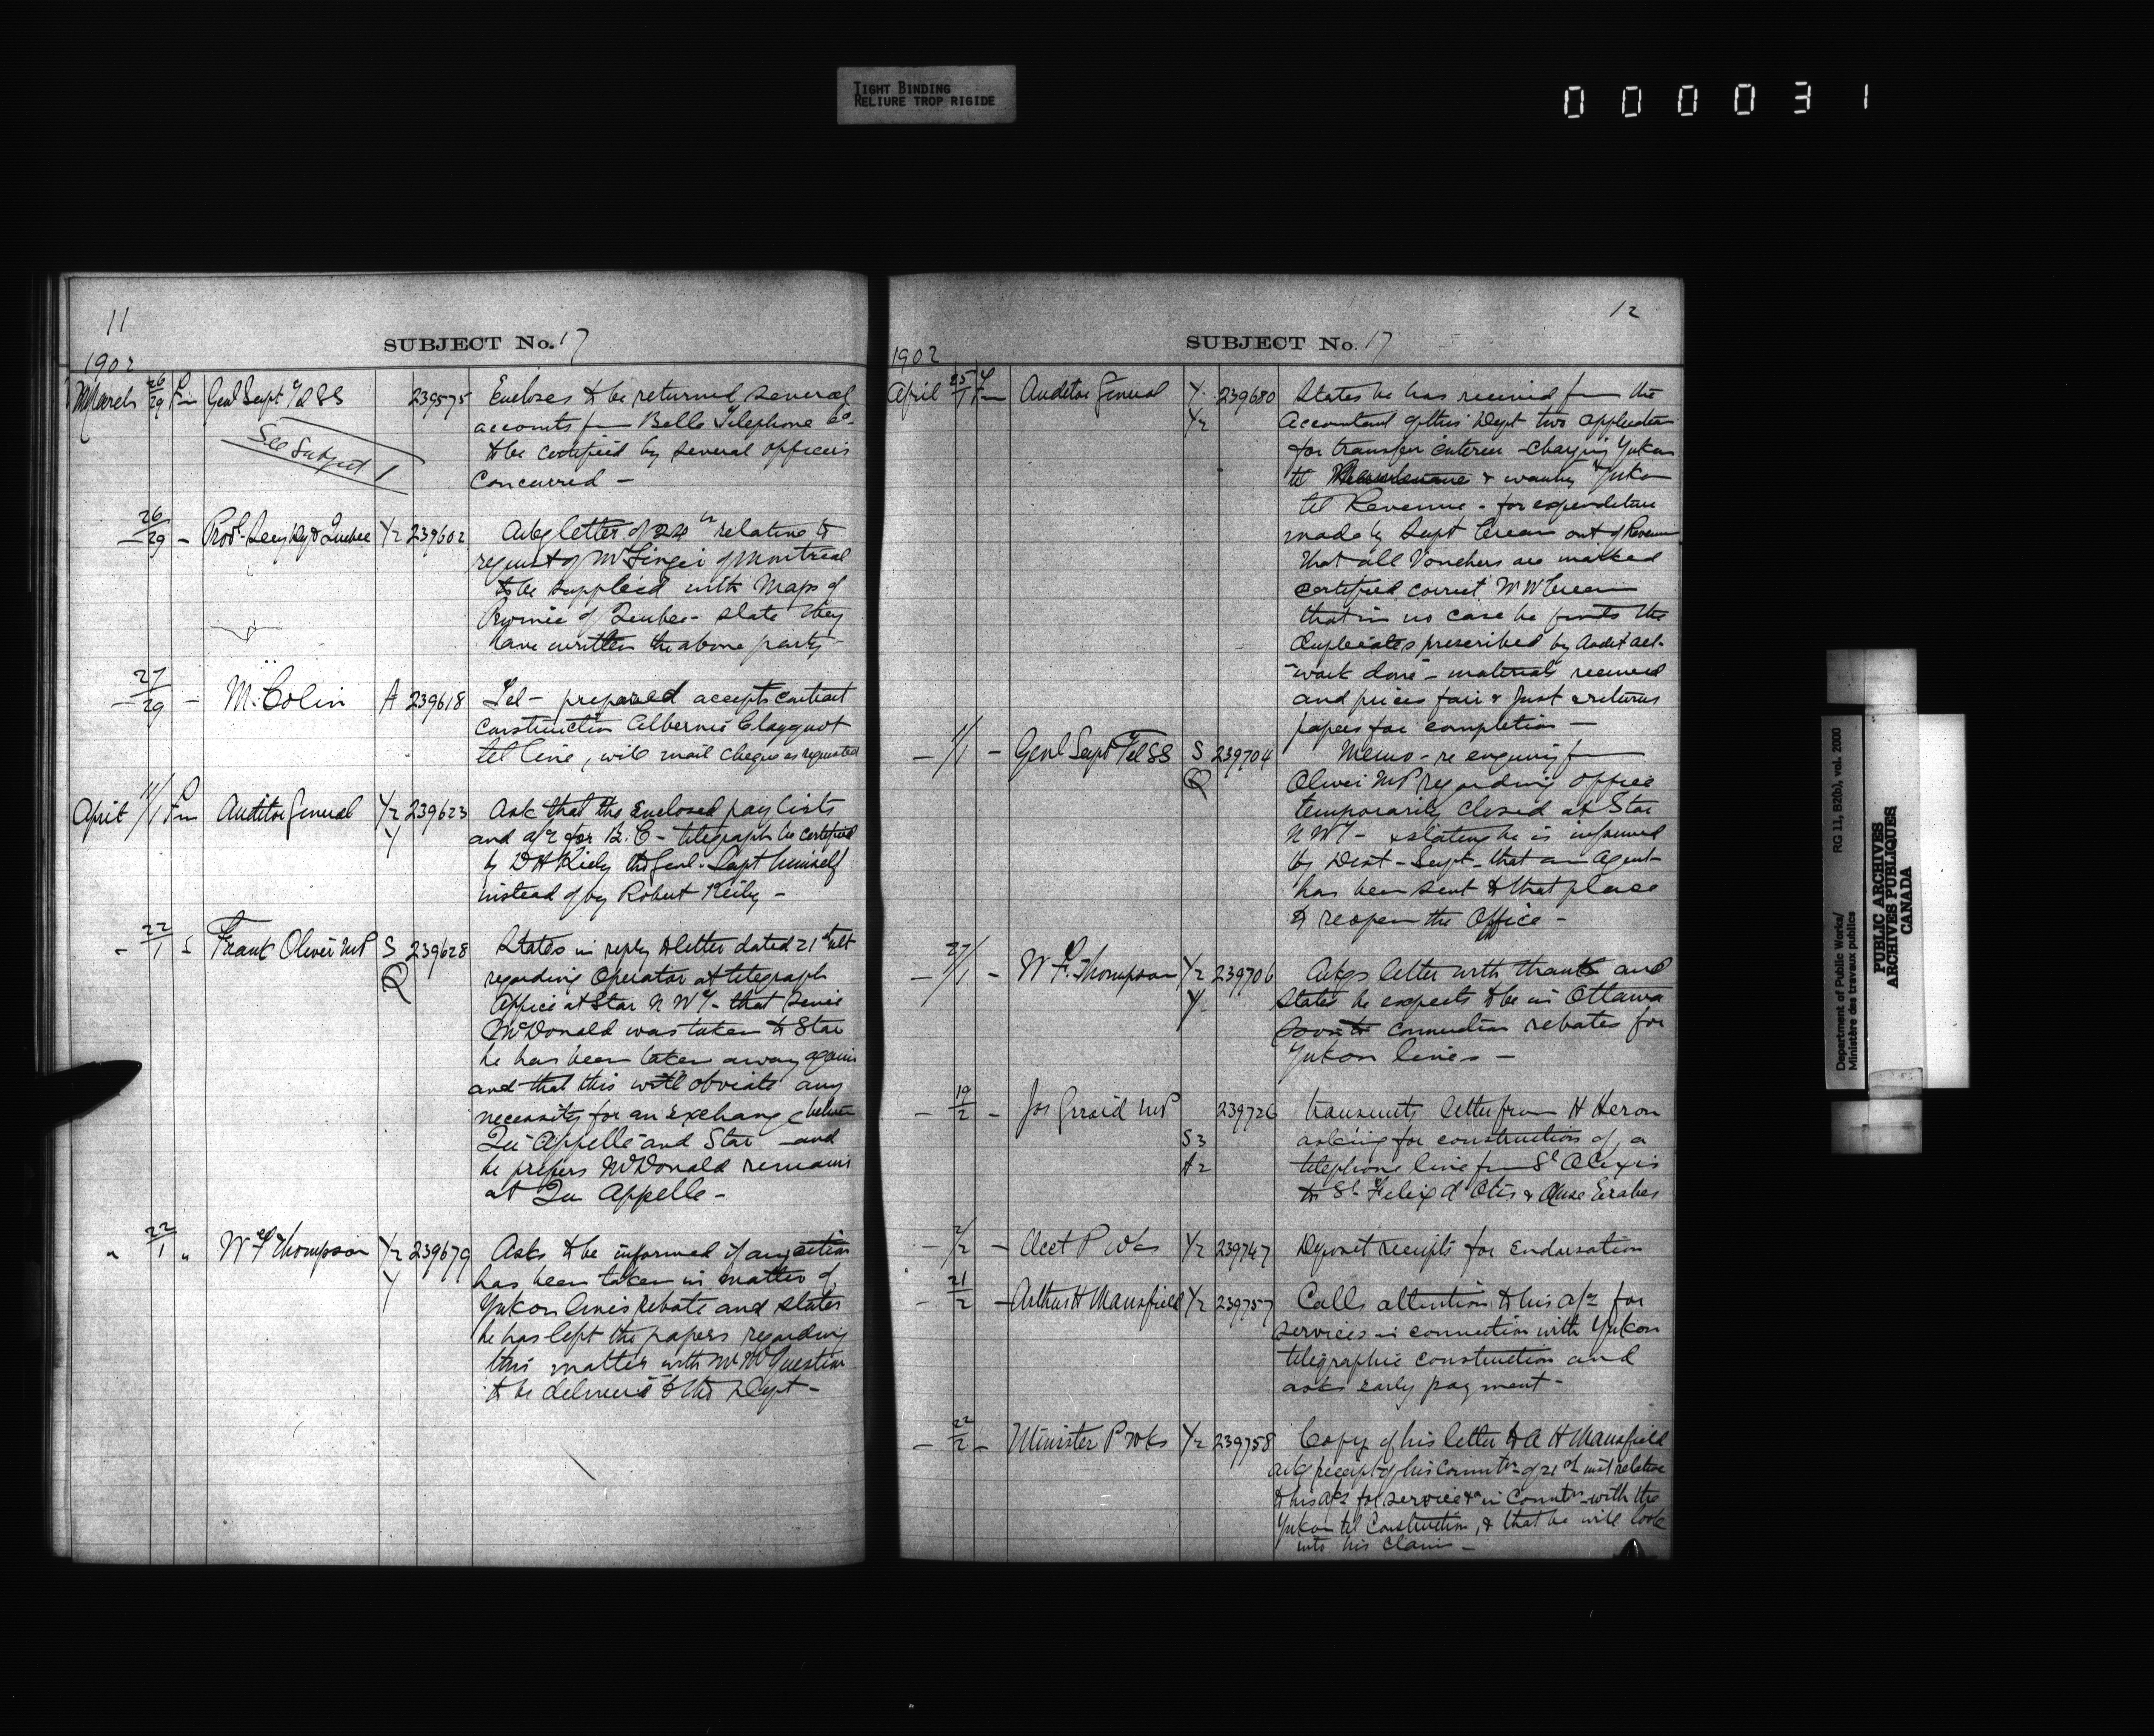 TIGHT BINDING
RELIURE TROP RIGIDE
000031
11
SUBJECT No. 17
1902
March 26/29 Fm Genl Supt Tel SS 239575 Encloses to be returned several
accounts fm Bell Telephone Co.
to be certified by several officers
concurred —
See Subject 1
26/29 - Prov. Secy Quebec Y2 239602 Ackg letter of 24th relative to
request of Mr Singer of Montreal
to be supplied with Maps of
Province of Quebec - state they
have written the above party -
27/29 - M. Colin A 239618 Tel - prepared accepts contract
construction Alberni Clayoquot
tel line, will mail cheque as requested
April 11/1 Fm Auditor General Y2 239623 Ask that the enclosed pay lists
Y and a/c for B.C - telegraph be certified
by D H Keely the Genl. Supt himself
instead of by Robert Keily -
- 22/1 - Frank Oliver MP S 239628 States in reply to letter dated 21st ult
Q regarding Operator at telegraph
Office at Star N W T - that since
McDonald was taken to Star
he has been taken away again
and that this will obviate any
necessity for an exchange between
Qu'Appelle and Star - and
he prefers McDonald remains
at Qu Appelle -
" 22/1 " W F Thompson Y2 239679 Asks to be informed if any action
Y has been taken in matter of
Yukon lines rebate and states
he has left the papers regarding
this matter with Mr McQuestion
to be delivered to the Dept -
12
SUBJECT No. 17
1902
April 25/1 Fm Auditor General Y 239680 States he has received fm the
Y2 Accountant of this Dept two application
for transfer entries - charging Yukon
tel & Yukon
tel Revenue - for expenditure
made by Supt Crean out of Revenue
that all Vouchers are marked
certified correct W W Crean
that in no case he finds the
duplicates prescribed by Audit act -
"work done - materials received
and prices fair & Just & returns
papers for completion —
- 11/1 - Genl Supt Tel SS S 239704 Memo - re enquiry fm
Q Oliver MP regarding office
temporarily closed at Star
N W T - & stating he is informed
by Dist - Supt - that an agent
has been sent to that place
to reopen the Office -
- 27/1 - W F. Thompson Y2 239706 Ackgs letter with thanks and
Y States he expects to be in Ottawa
connection rebates for
Yukon lines -
- 19/2 - Jos Girard MP 239726 transmits letter from H Heron
S3 asking for construction of a
A2 telephone line from St Alexis
to St Felix d'Otis & Anse
- 2/2 - Acct P Wks Y2 239747 Deposit receipts for Endorsation
- 21/2 - Arthur H Mansfield Y2 239757 Calls attention to his a/c for
services in connection with Yukon
telegraphic construction and
asks early payment -
- 22/2 - Minister P Wks Y2 239758 Copy of his letter to A H Mansfield
ackg receipt of his commtn of 21st inst relative
to his a/c for services in Connctn with the
Yukon tel Construction, & that he will look
into his claim -
Department of Public Works/
Ministère des travaux publics
RG 11, B2(b), vol. 2000
PUBLIC ARCHIVES
ARCHIVES PUBLIQUES
CANADA